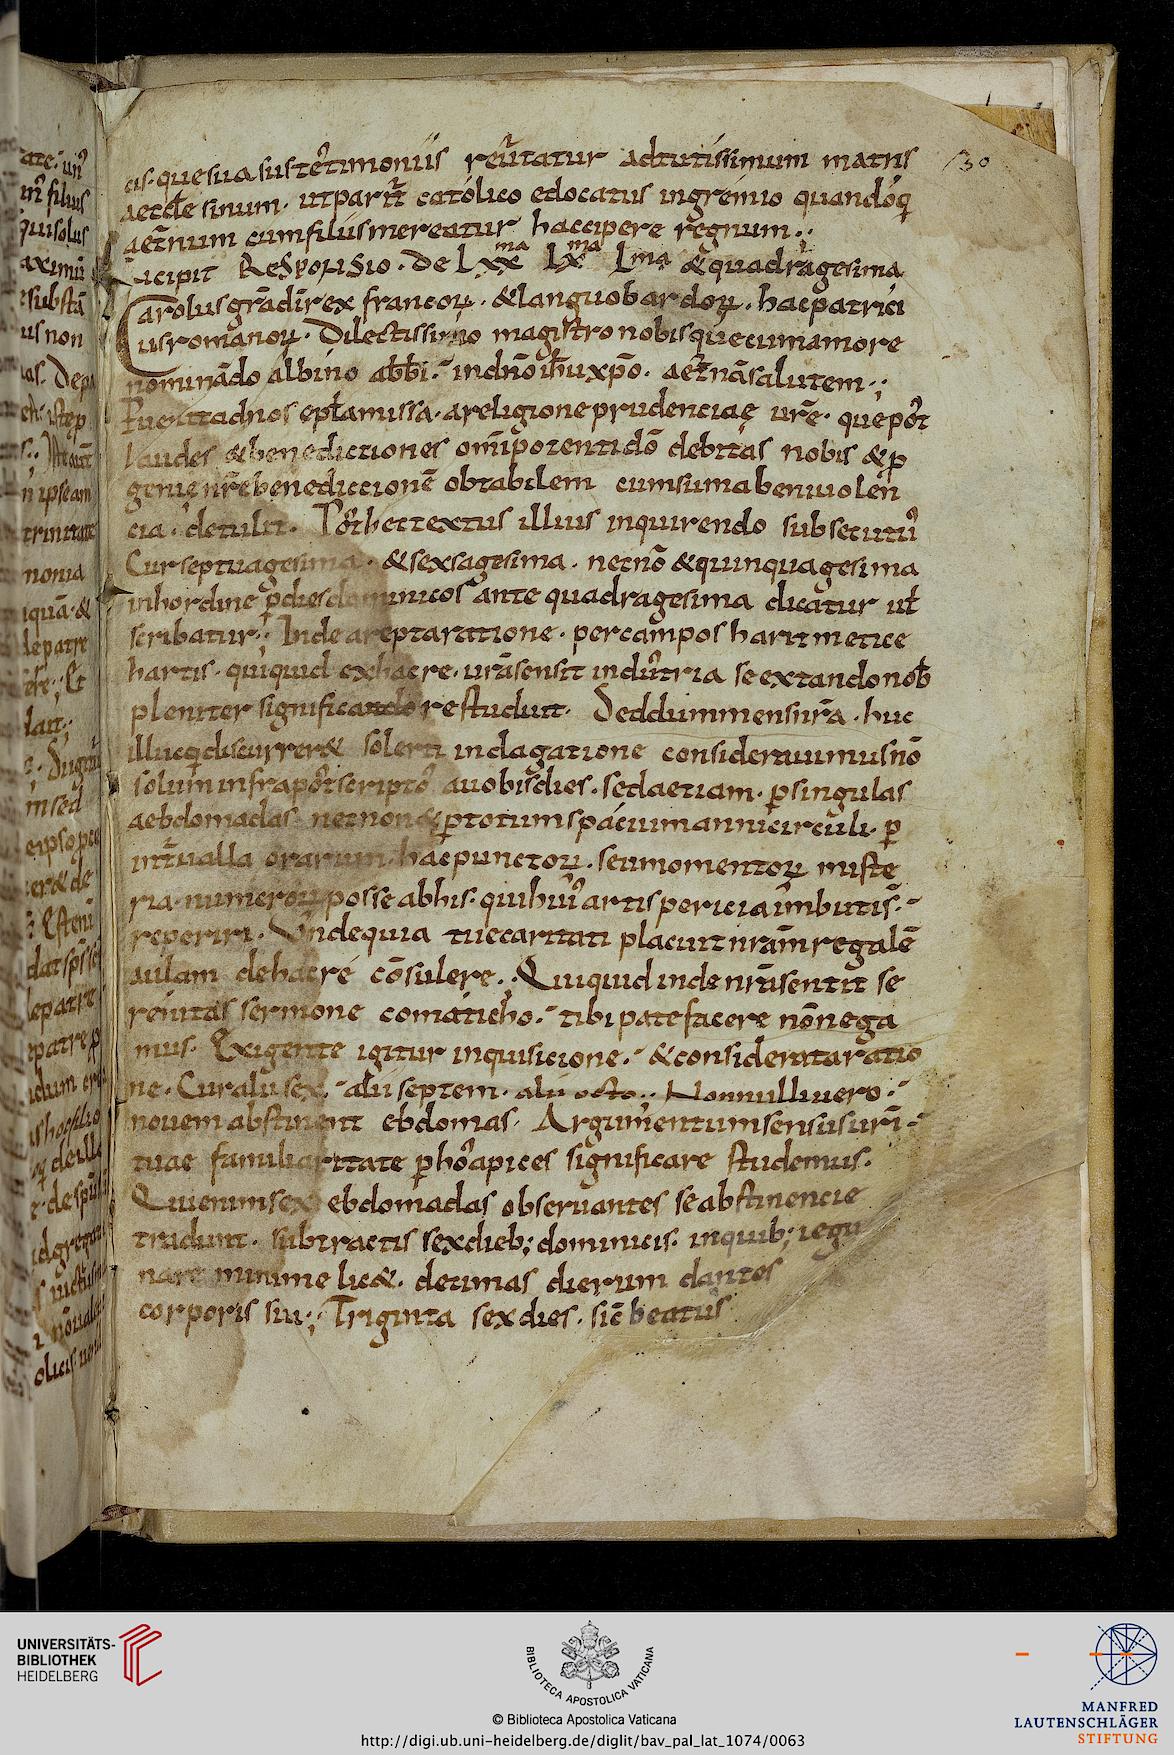 cis. que sua suster̃timoniis reũtatur adtutissimum matris
aecc̃le sinum. utpart̃t católico edocatus ingremio quandóq;
aet̃num cumfiliis mereatur haccipere regnum.;
ncipit ReSpoNSio. De Lxxma Lxma Lma &quadragesima
Carolus grãdĩ rex francoꝝ. &languobardoꝝ. hacpatrici
us romanoꝝ. Dilectissimo magistro nobisque cumamore
nominãdo albino abb̃i. indñoih̃uxp̃o. aet̃nãsalutem.;
Peruenit adnos ep̃tamissa. areligione prudenciaę ur̃e. quepõt
laudes &benedictiones om̃ipotentidõ debitas nobis &p
genie nr̃e benediccionẽ obtabilem cumsuma beniuolen
cia. detulit. Põthectextus illius inquirendo subsecutus
Cur septuagesima. &sexsagesima. necnõ &quinquagesima
inhordine p̱dies dominicos ante quadragesima dicatur uł
scribatur.; Inde areptaratione. per campos haritmetice
hartis. quiquid exhacre. ur̃asensit indus̃tria se extando nob̃
pleniter significando restudiut. Seddummensur̃a. huc
illucq; discurrer& solerti indagatione considerauimus nõ
solum infrapõtscriptos auobis dies. sedaetiam. p̱singulas
aebdomadas necnon& p̱totum spácium annicirculi. p̱
int̃ualla orarum. hacpunctoꝝ. seumomentoꝝ miste
ria. numeroꝝ posse abhis. quihui᷒ artis pericia imbutis.
reperiri. Vndequia tuecaritati placuit nr̃am regalẽ
aulam dehacré cõsulere.; Quiquid inde nr̃asentit se
renitas sermone comáticho. tibi patefacere nõnega
mus. Exigente igitur inquisicione. &considerata ratio
ne. Cur alii sex. alii septem. alii octo.; Nonnulli uero.
nouem abstinent ebdomas. Argumentum sensus uri.
tuae familiaritate p̱hõsapices significare studemus.
Qui enim sex ebdomadas obseruantes se abstinencie
tradunt. subtractis sexdieb; dominicis. inquib; iegu
nare minime lic&. decimas dierum dantes
corporis sui.; Triginta sex dies. sic̃ beatus
30
UNIVERSITÄTS-
BIBLIOTHEK
HEIDELBERG
BIBLIOTECA APOSTOLICA VATICANA
© Biblioteca Apostolica Vaticana
http://digi.ub.uni-heidelberg.de/diglit/bav_pal_lat_1074/0063
MANFRED
LAUTENSCHLÄGER
STIFTUNG